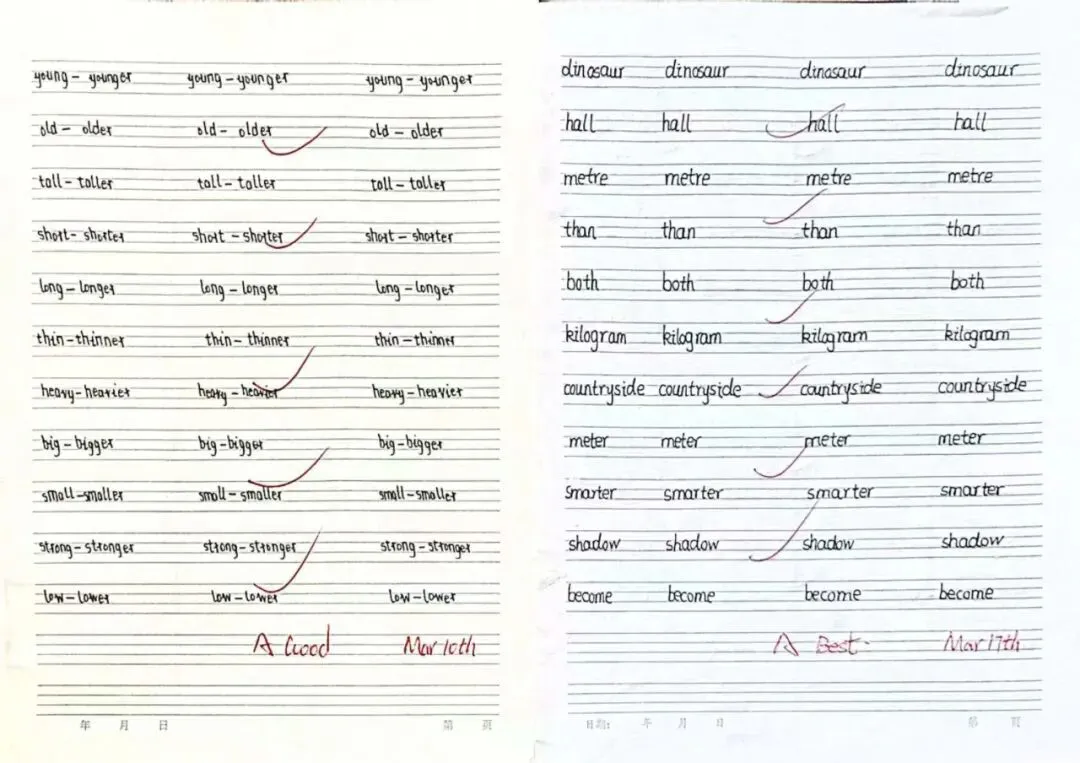 young - younger young - younger young - younger
old - older old - older old - older
tall - taller tall - taller tall - taller
short - shorter short - shorter short - shorter
long - longer long - longer long - longer
thin - thinner thin - thinner thin - thinner
heavy - heavier heavy - heavier heavy - heavier
big - bigger big - bigger big - bigger
small - smaller small - smaller small - smaller
strong - stronger strong - stronger strong - stronger
low - lower low - lower low - lower
A Good Mar 10th
年 月 日 第 页
dinosaur dinosaur dinosaur dinosaur
hall hall hall hall
metre metre metre metre
than than than than
both both both both
kilogram kilogram kilogram kilogram
countryside countryside countryside countryside
meter meter meter meter
smarter smarter smarter smarter
shadow shadow shadow shadow
become become become become
A Best. Mar 17th
日期: 年 月 日 第 页